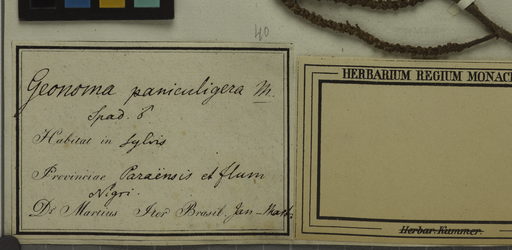 40
Geonoma paniculigera M.
Spad. ♂
Habitat in sylvis
Provinciae Paraënsis et flum
Nigri.
Dr Martius Iter Brasil. Jan–Mart.
HERBARIUM REGIUM MONAC
Herbar. Kummer.